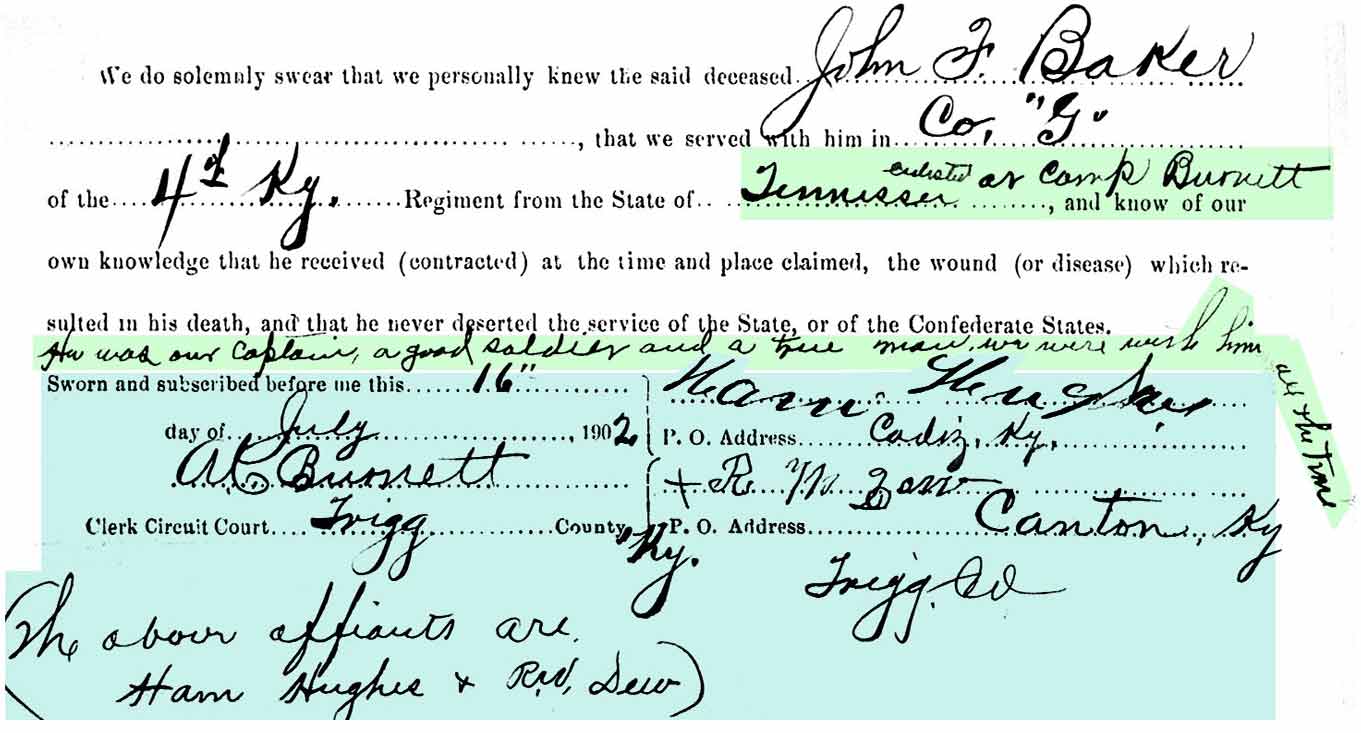 We do solemnly swear that we personally knew the said deceased John F. Baker
, that we served with him in Co. "G"
of the 4th Ky. Regiment from the State of Tennessee enlisted at Camp Burnett, and know of our
own knowledge that he received (contracted) at the time and place claimed, the wound (or disease) which re-
sulted in his death, and that he never deserted the service of the State, or of the Confederate States.
He was our Captain, a good soldier and a true man. we were with him all the time
Sworn and subscribed before me this 16" Ham Hughes
day of July, 1902 P. O. Address Cadiz, Ky.
A.C. Burnett + R
Clerk Circuit Court Trigg County, Ky. P. O. Address Canton, Ky
Trigg Co
(The above affiants are
Ham Hughes + R.W. Dew)